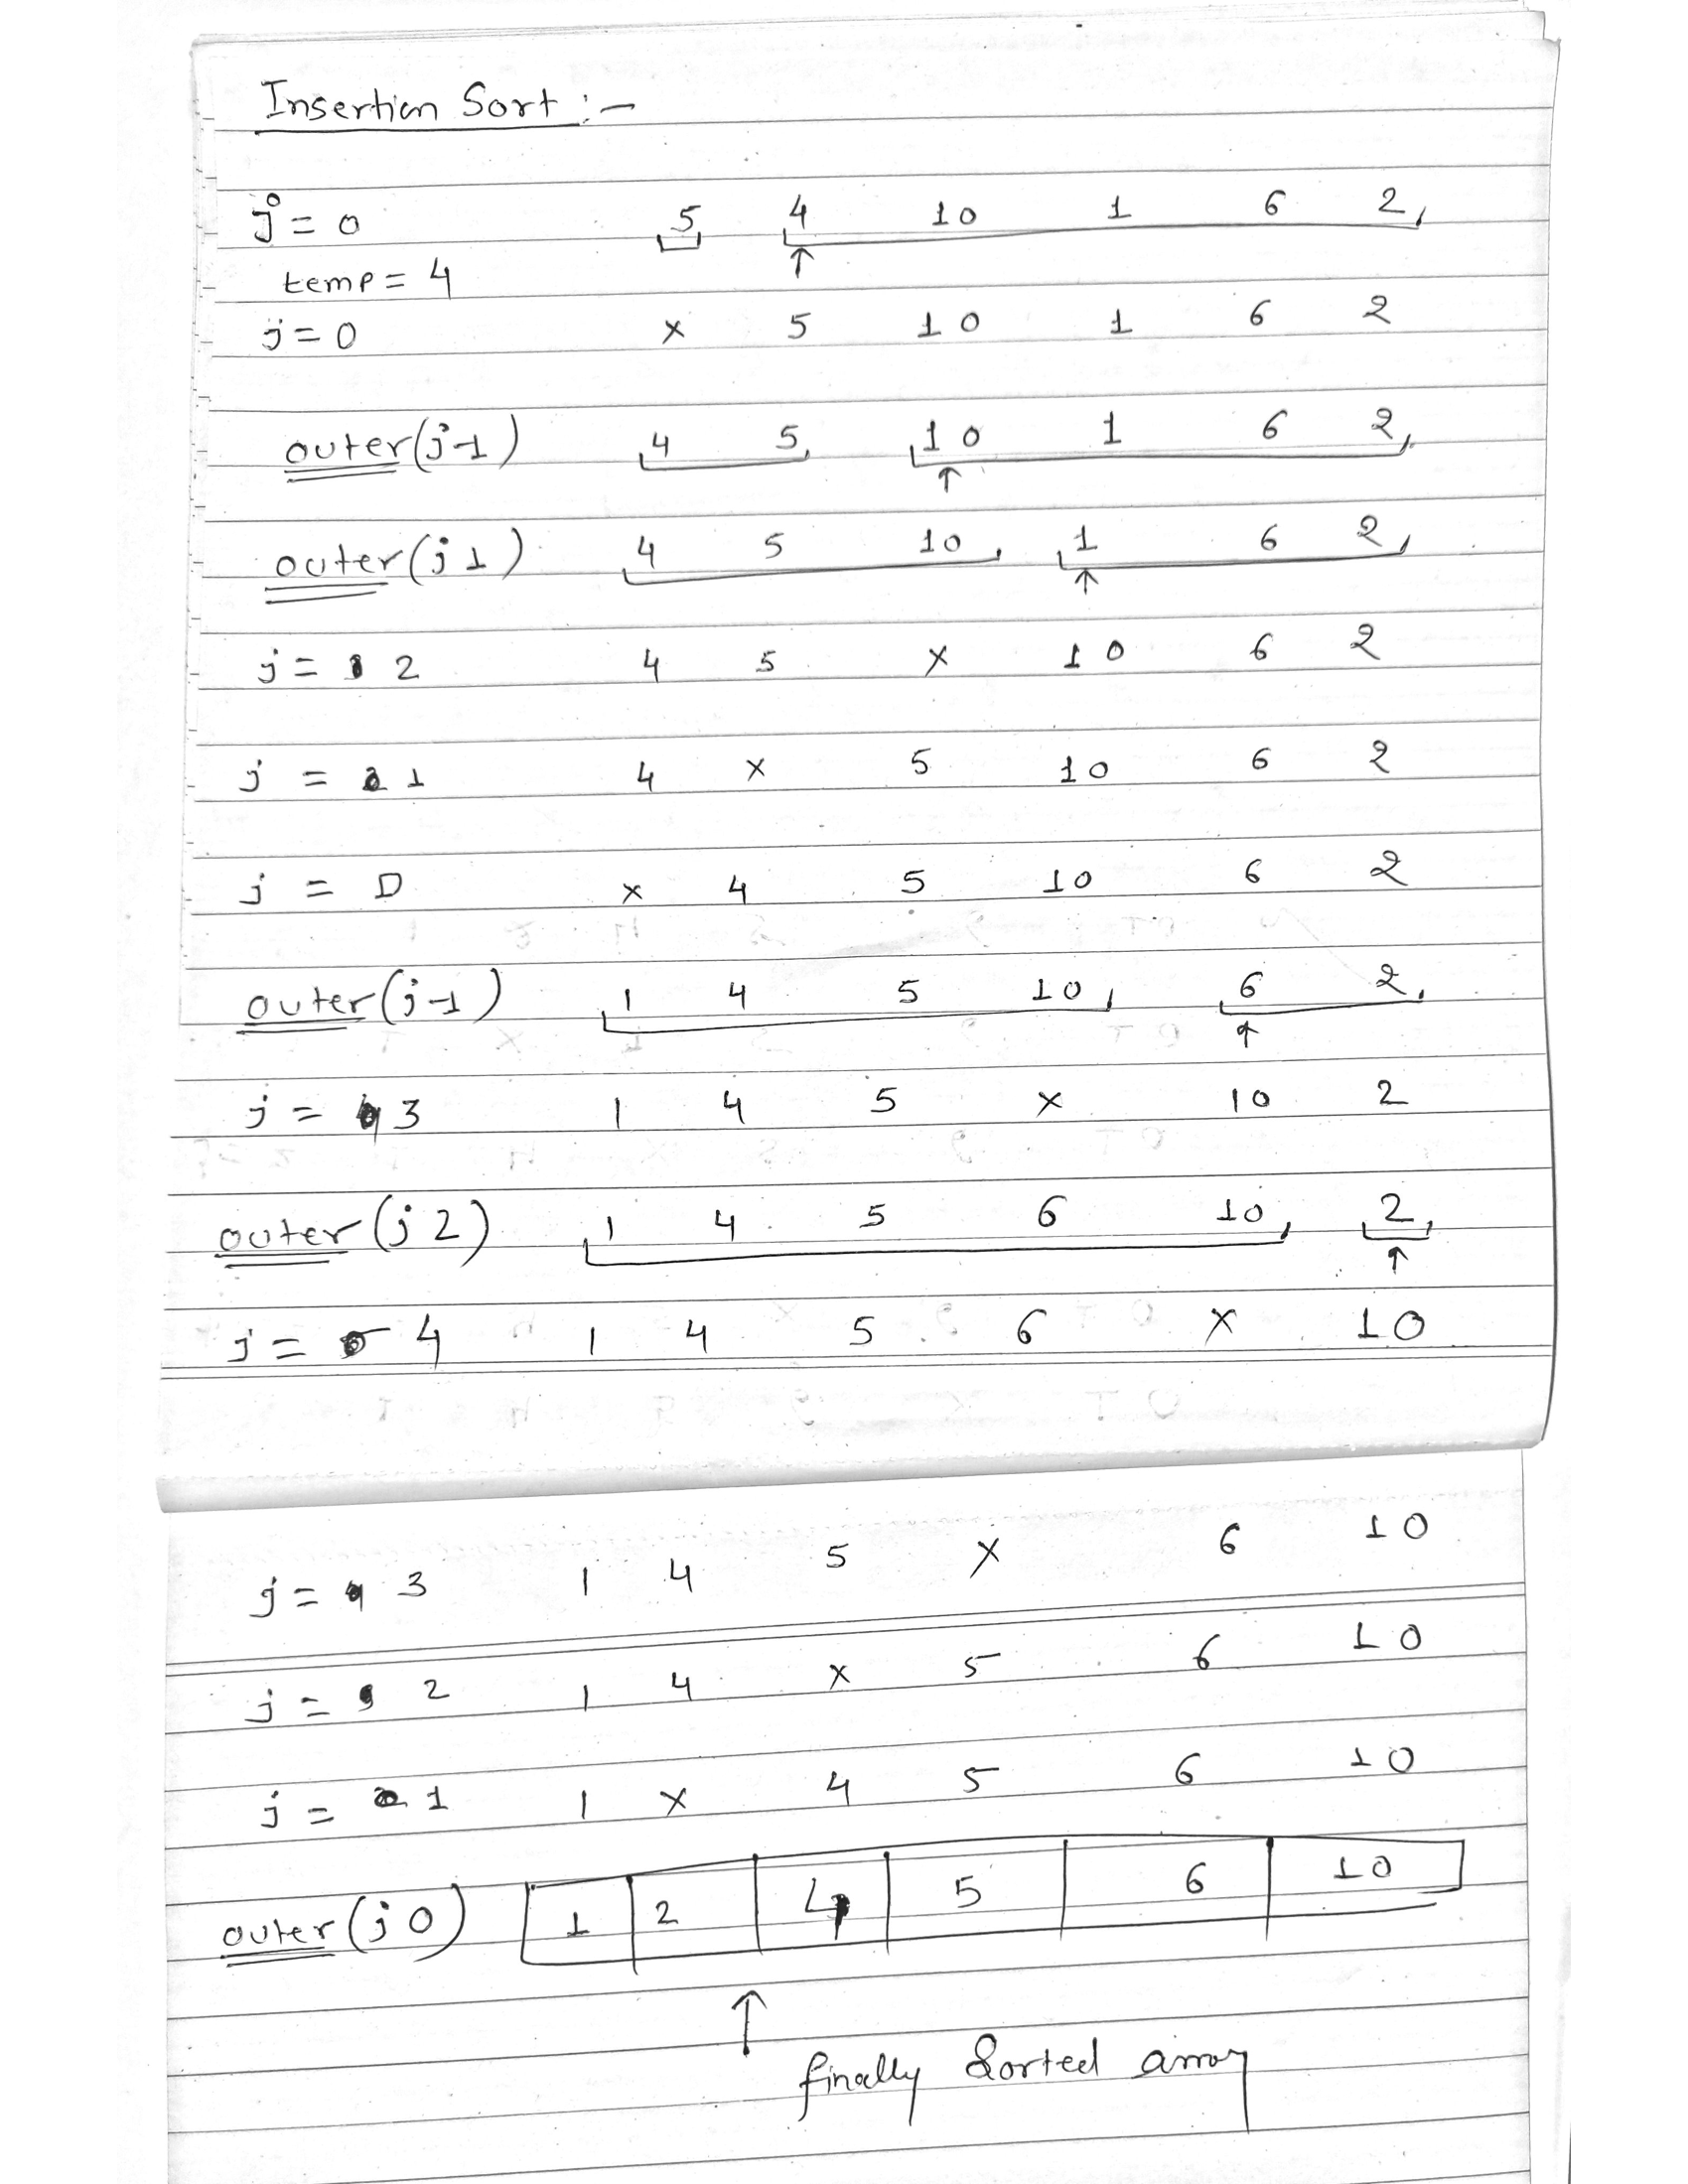 Insertion Sort :-
j = 0 5 4 10 1 6 2
↑
temp = 4
j = 0 x 5 10 1 6 2
outer (j -1) 4 5 10 1 6 2
↑
outer (j 1) 4 5 10 1 6 2
↑
j = 2 4 5 x 10 6 2
j = 1 4 x 5 10 6 2
j = 0 x 4 5 10 6 2
outer (j -1) 1 4 5 10 6 2
↑
j = 3 1 4 5 x 10 2
outer (j 2) 1 4 5 6 10 2
↑
j = 4 1 4 5 6 x 10
j = 3 1 4 5 x 6 10
j = 2 1 4 x 5 6 10
j = 1 1 x 4 5 6 10
outer (j 0) 1 2 4 5 6 10
↑
finally Sorted array